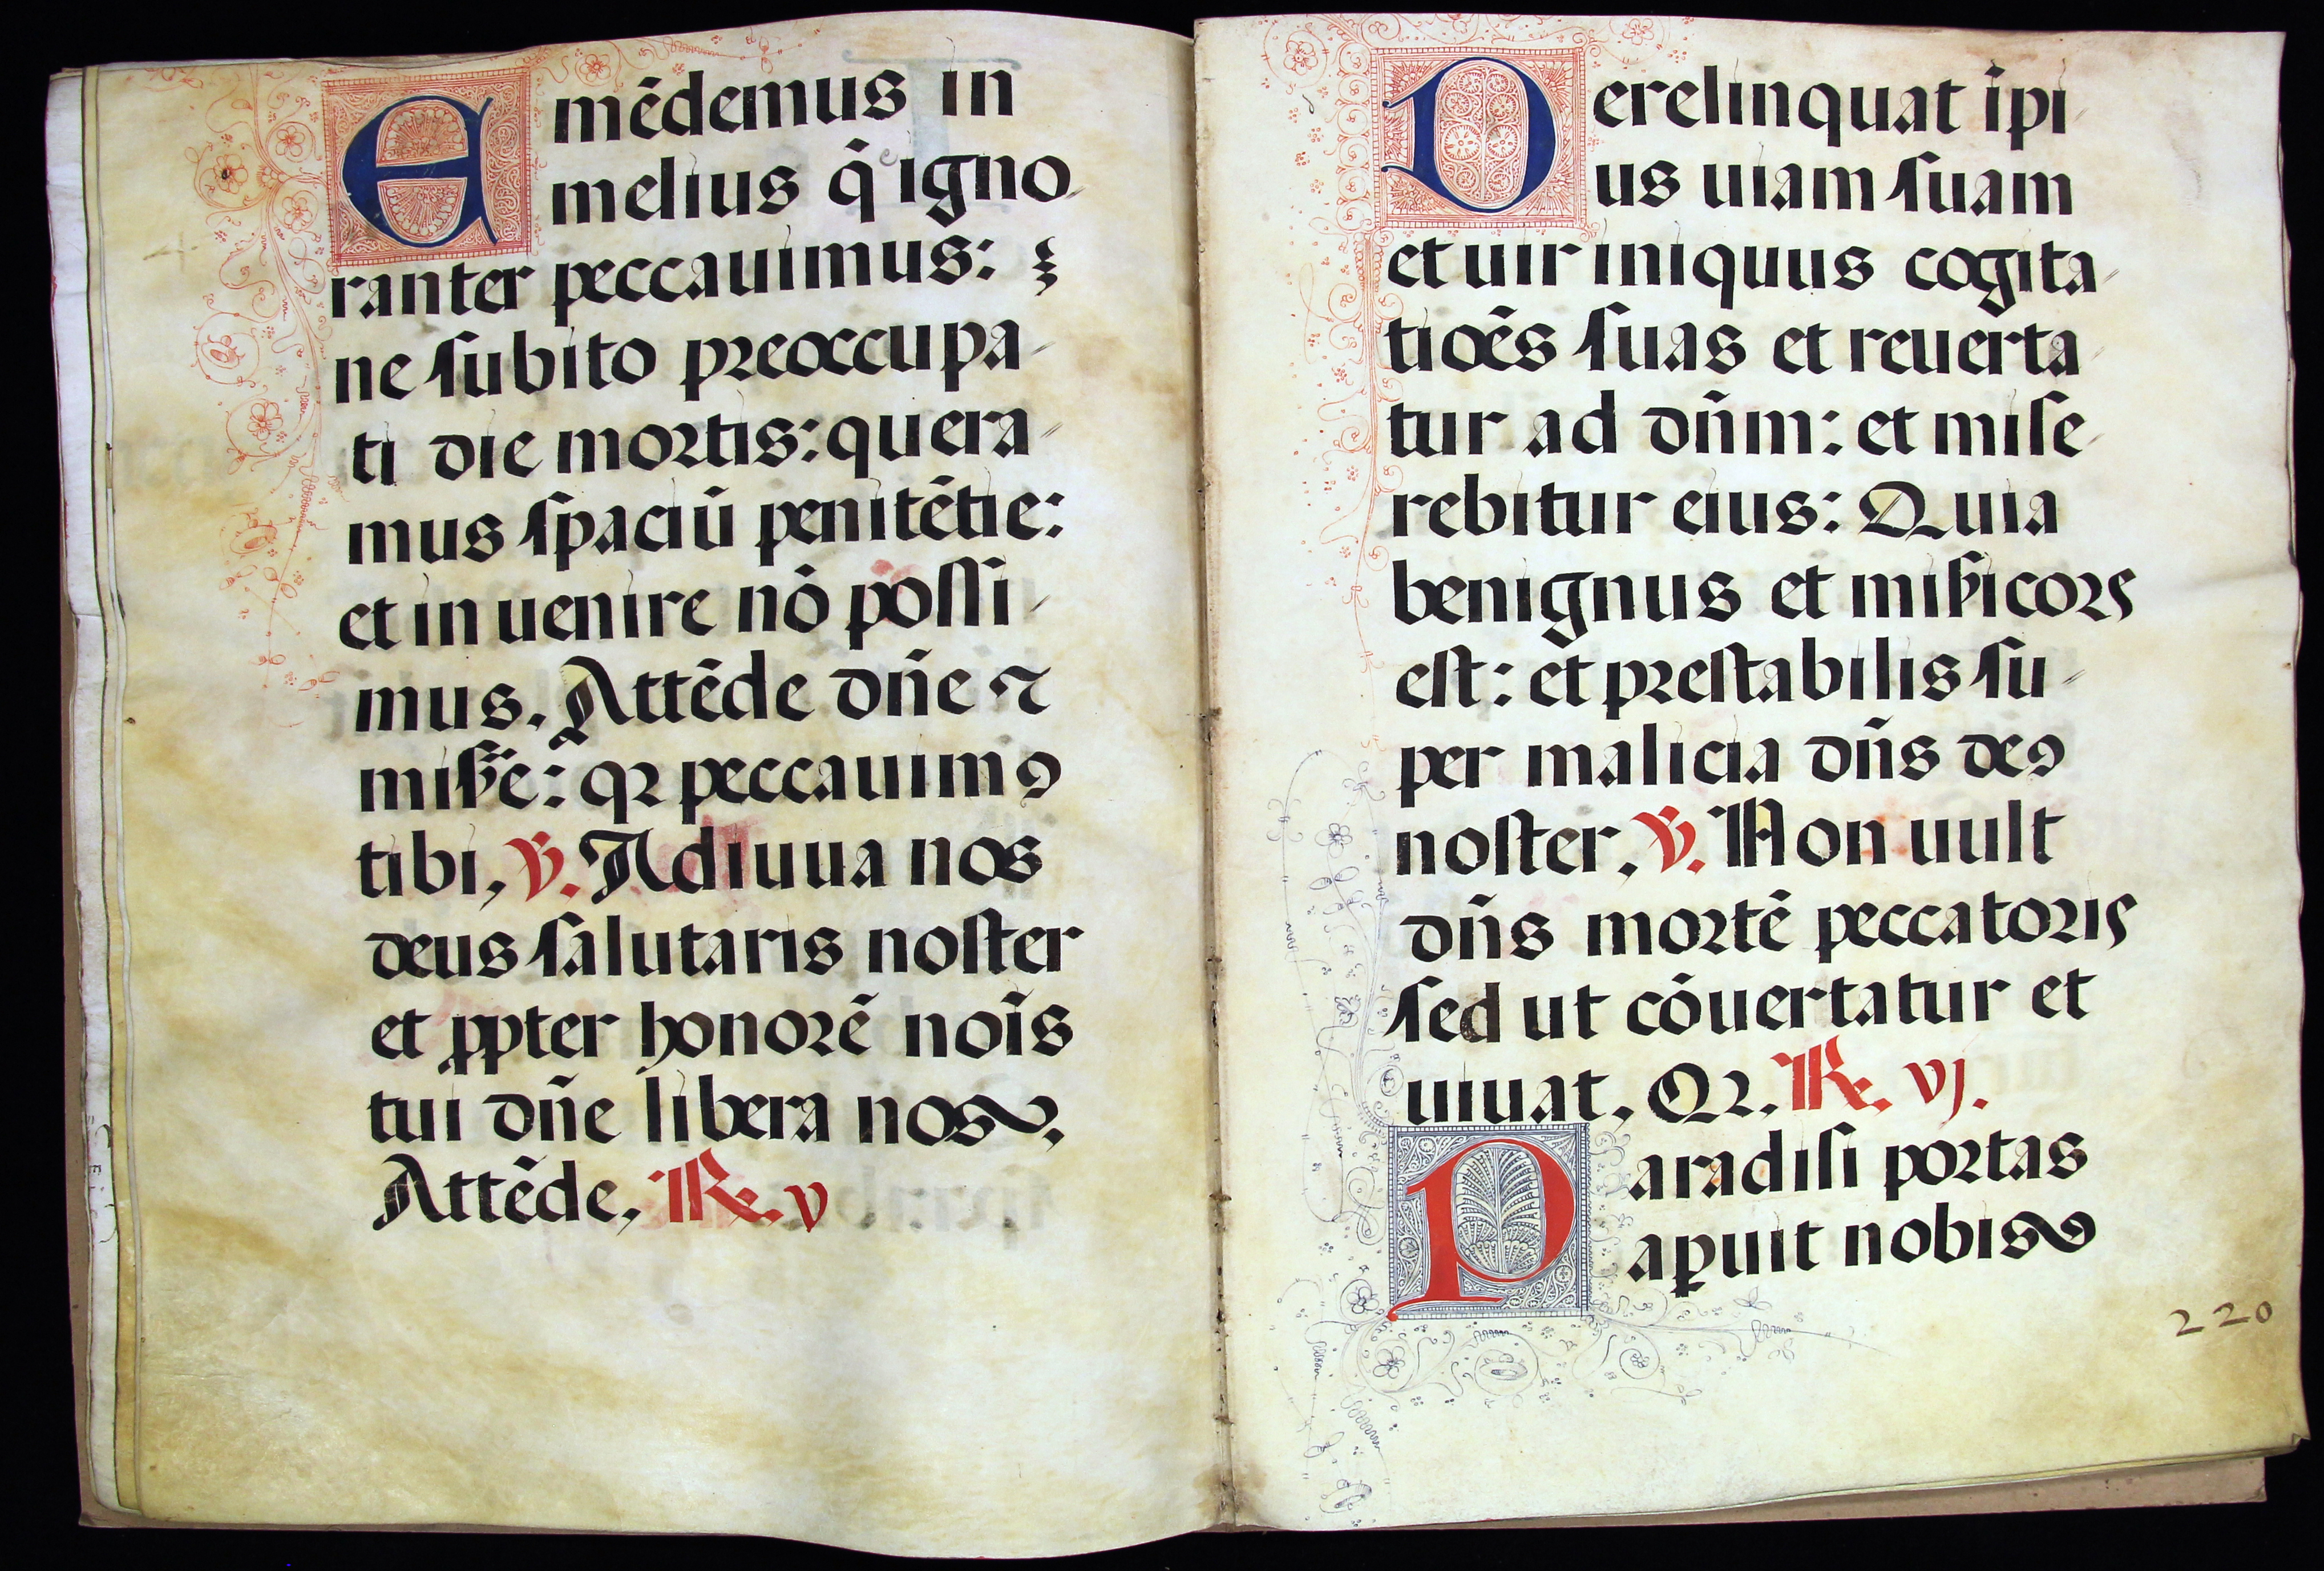 Emēdemus in
melius q̄ igno
ranter peccauimus:
ne ſubito preoccupa-
ti die mortis: quera-
mus ſpaciū penitētie:
et in uenire nō poſſi-
mus. Attēde dn̄e ⁊
miẜe: qꝛ peccauimꝯ
tibi, ℣. Adiuua nos
deus ſalutaris noſter
et ꝓpter honorē noīs
tui dn̄e libera nos.
Attēde, ℟. v
Derelinquat īpi
us uiam ſuam
et uir iniquus cogita-
tiōēs ſuas et reuerta-
tur ad dn̄m: et miſe-
rebitur eius: Quia
benignus et miẜicors
eſt: et preſtabilis ſu-
per malicia dn̄s deꝯ
noſter, ℣. Non uult
dn̄s mortē peccatoris
ſed ut cōuertatur et
uiuat, Qꝛ. ℟. vj.
Paradiſi portas
aꝑuit nobis
220